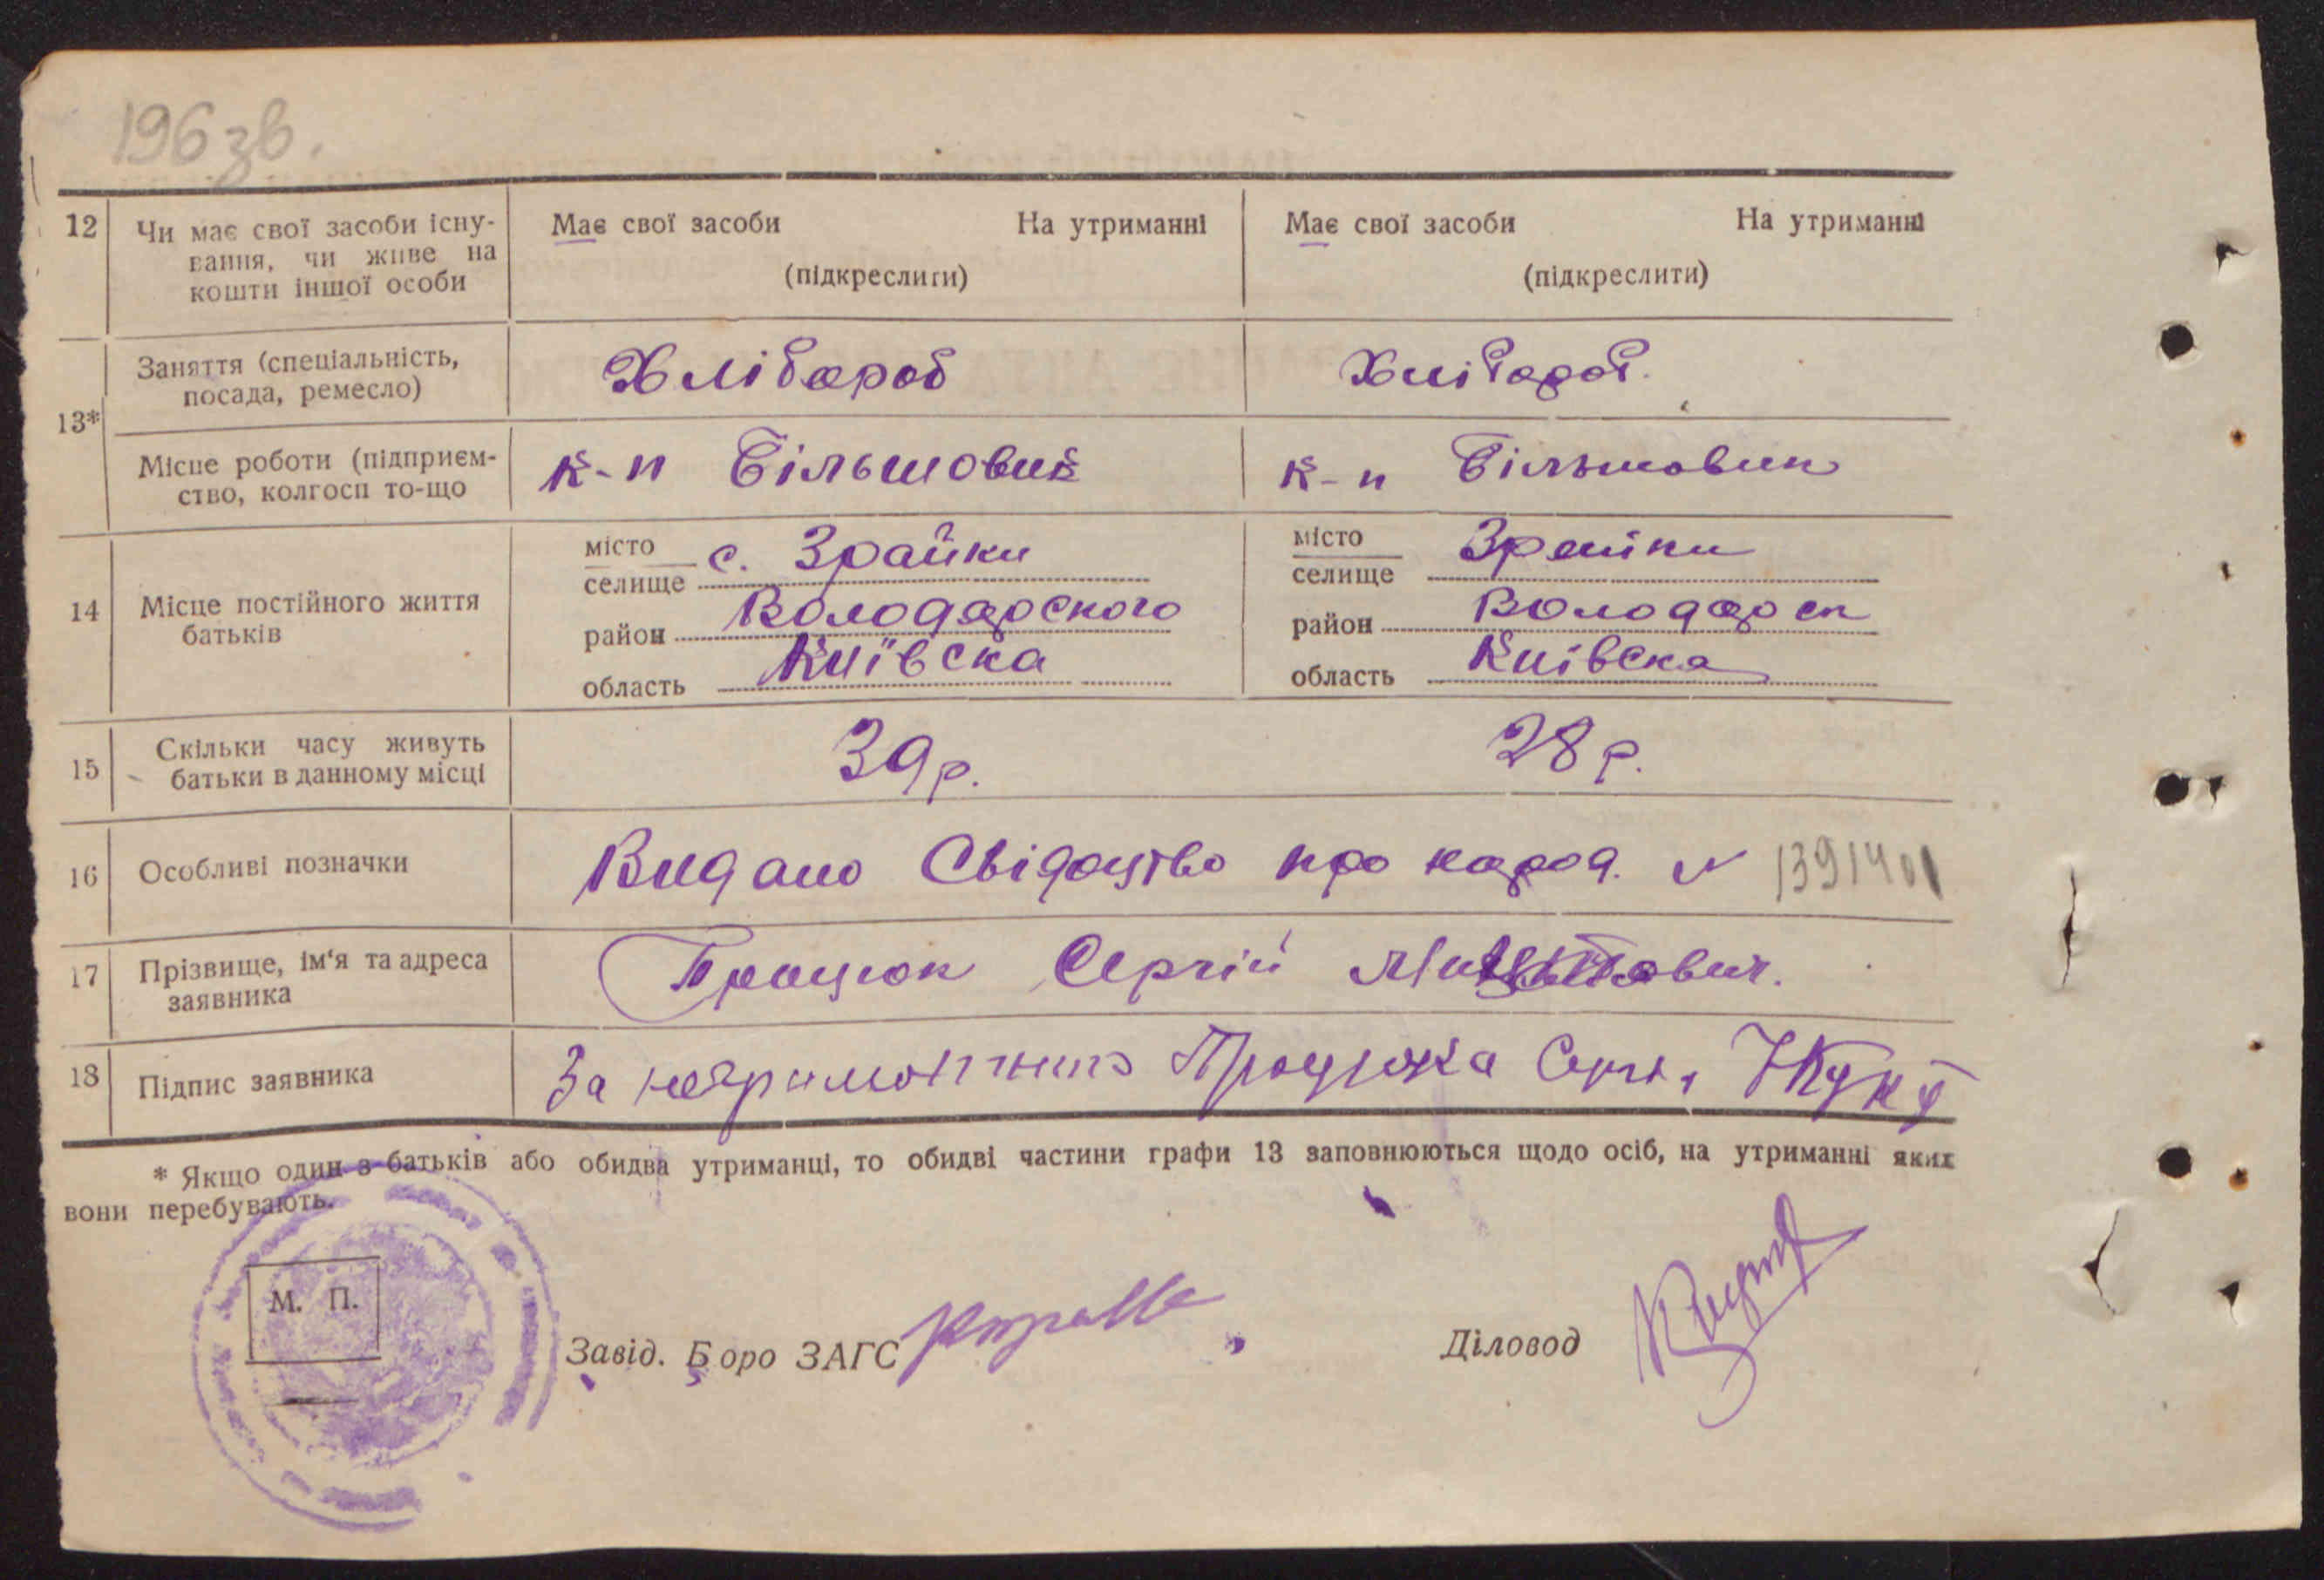 196 зв.
12 Чи має свої засоби існу-
вання, чи живе на
кошти іншої особи
Має свої засоби На утриманні
(підкреслити)
Має свої засоби На утриманні
(підкреслити)
13*
Заняття (спеціальність,
посада, ремесло)
Хлібороб
Хлібороб.
Місце роботи (підприєм-
ство, колгосп то-що
к-п Більшовик
к-п Більшовик
14 Місце постійного життя
батьків
місто
селище с. Зрайки
район Володарского
область Київска
місто
селище Зрайки
район Володарск
область Київска
15 Скільки часу живуть
батьки в данному місці
39 р.
28 р.
16 Особливі позначки
Видано Свідоцтво про народ. N 1391401
17 Прізвище, ім'я та адреса
заявника
Процюк Сергій
18 Підпис заявника
За Процюка
* Якщо один з батьків або обидва утриманці, то обидві частини графи 13 заповнюються щодо осіб, на утриманні яких
вони перебувають.
М. П.
Завід. Бюро ЗАГС
Діловод